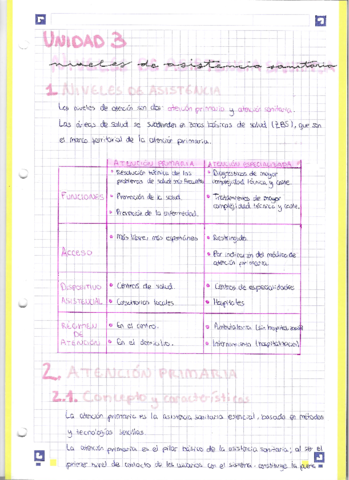 UNIDAD 3
niveles de asistencia sanitaria
1. NIVELES DE ASISTENCIA
Los niveles de atención son dos: atención primaria y atención sanitaria.
Las áreas de salud se subdividen en zonas básicas de salud (ZBS), que son
el marco territorial de la atención primaria.
ATENCIÓN PRIMARIA
ATENCIÓN ESPECIALIZADA
FUNCIONES
Resolución técnica de los
problemas de salud más frecuentes
Promoción de la salud.
Prevención de la enfermedad.
Diagnósticos de mayor
complejidad técnica y coste.
Tratamientos de mayor
complejidad técnica y coste.
ACCESO
Más libre, más espontáneo
Restringido.
Por indicación del médico de
atención primaria.
DISPOSITIVO
ASISTENCIAL
Centros de salud.
Consultorios locales
Centros de especialidades
Hospitales
RÉGIMEN
DE
ATENCIÓN
En el centro.
En el domicilio.
Ambulatorio (sin hospitalización)
Internamiento (hospitalización)
2. ATENCIÓN PRIMARIA
2.1. Concepto y características
La atención primaria es la asistencia sanitaria esencial, basada en métodos
y tecnologías sencillas.
La atención primaria es el pilar básico de la asistencia sanitaria; al ser el
primer nivel de contacto de los usuarios con el sistema, constituye la puerta